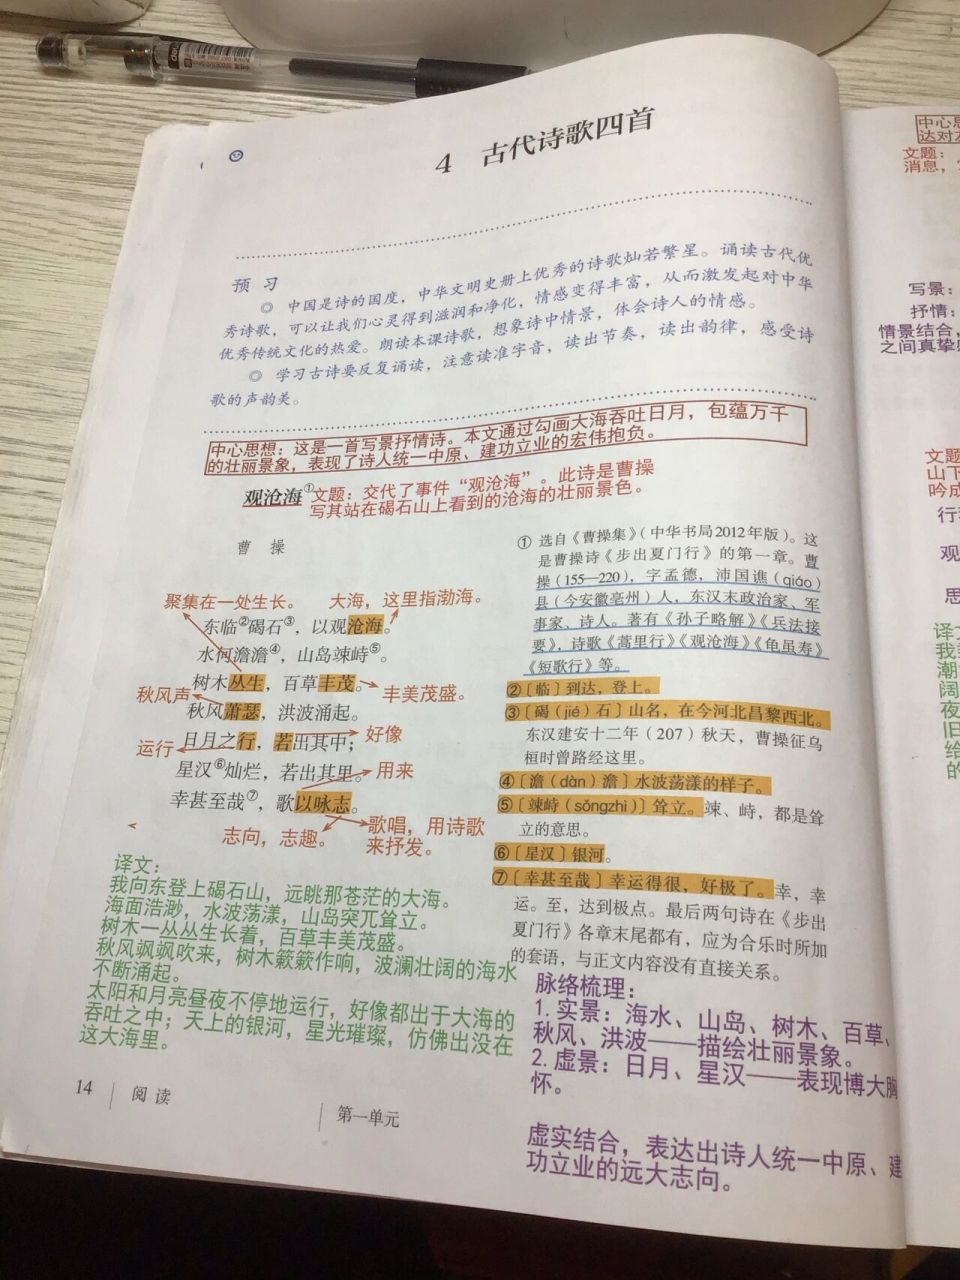 4 古代诗歌四首
预 习
◎ 中国是诗的国度，中华文明史册上优秀的诗歌灿若繁星。诵读古代优
秀诗歌，可以让我们心灵得到滋润和净化，情感变得丰富，从而激发起对中华
优秀传统文化的热爱。朗读本课诗歌，想象诗中情景，体会诗人的情感。
◎ 学习古诗要反复诵读，注意读准字音，读出节奏，读出韵律，感受诗
歌的声韵美。
中心思想：这是一首写景抒情诗。本文通过勾画大海吞吐日月，包蕴万千
的壮丽景象，表现了诗人统一中原、建功立业的宏伟抱负。
观沧海①
文题：交代了事件“观沧海”。此诗是曹操
写其站在碣石山上看到的沧海的壮丽景色。
曹 操
聚集在一处生长。 大海，这里指渤海。
东临②碣石③，以观沧海。
水何澹澹④，山岛竦峙⑤。
树木丛生，百草丰茂。
丰美茂盛。
秋风声
秋风萧瑟，洪波涌起。
好像
日月之行，若出其中；
运行
星汉⑥灿烂，若出其里。
用来
幸甚至哉⑦，歌以咏志。
志向，志趣。
歌唱，用诗歌
来抒发。
① 选自《曹操集》（中华书局2012年版）。这
是曹操诗《步出夏门行》的第一章。曹
操（155—220），字孟德，沛国谯（qiáo）
县（今安徽亳州）人，东汉末政治家、军
事家、诗人。著有《孙子略解》《兵法接
要》，诗歌《蒿里行》《观沧海》《龟虽寿》
《短歌行》等。
②〔临〕到达，登上。
③〔碣（jié）石〕山名，在今河北昌黎西北。
东汉建安十二年（207）秋天，曹操征乌
桓时曾路经这里。
④〔澹（dàn）澹〕水波荡漾的样子。
⑤〔竦峙（sǒngzhì）〕耸立。竦、峙，都是耸
立的意思。
⑥〔星汉〕银河。
⑦〔幸甚至哉〕幸运得很，好极了。幸，幸
运。至，达到极点。最后两句诗在《步出
夏门行》各章末尾都有，应为合乐时所加
的套语，与正文内容没有直接关系。
译文：
我向东登上碣石山，远眺那苍茫的大海。
海面浩渺，水波荡漾，山岛突兀耸立。
树木一丛丛生长着，百草丰美茂盛。
秋风飒飒吹来，树木簌簌作响，波澜壮阔的海水
不断涌起。
太阳和月亮昼夜不停地运行，好像都出于大海的
吞吐之中；天上的银河，星光璀璨，仿佛出没在
这大海里。
脉络梳理：
1. 实景：海水、山岛、树木、百草、
秋风、洪波——描绘壮丽景象。
2. 虚景：日月、星汉——表现博大胸
怀。
虚实结合，表达出诗人统一中原、建
功立业的远大志向。
14 阅读
第一单元
中心思
达对友
文题：
消息，
写景：
抒情：
情景结合，
之间真挚
文题
山下
吟成
行
观
思
译文
我
潮
阔
夜
旧
给
的